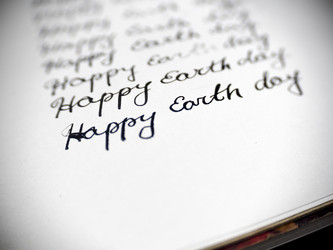 Happy Earth day
Happy Earth day
Happy Earth day
Happy Earth day
Happy Earth day